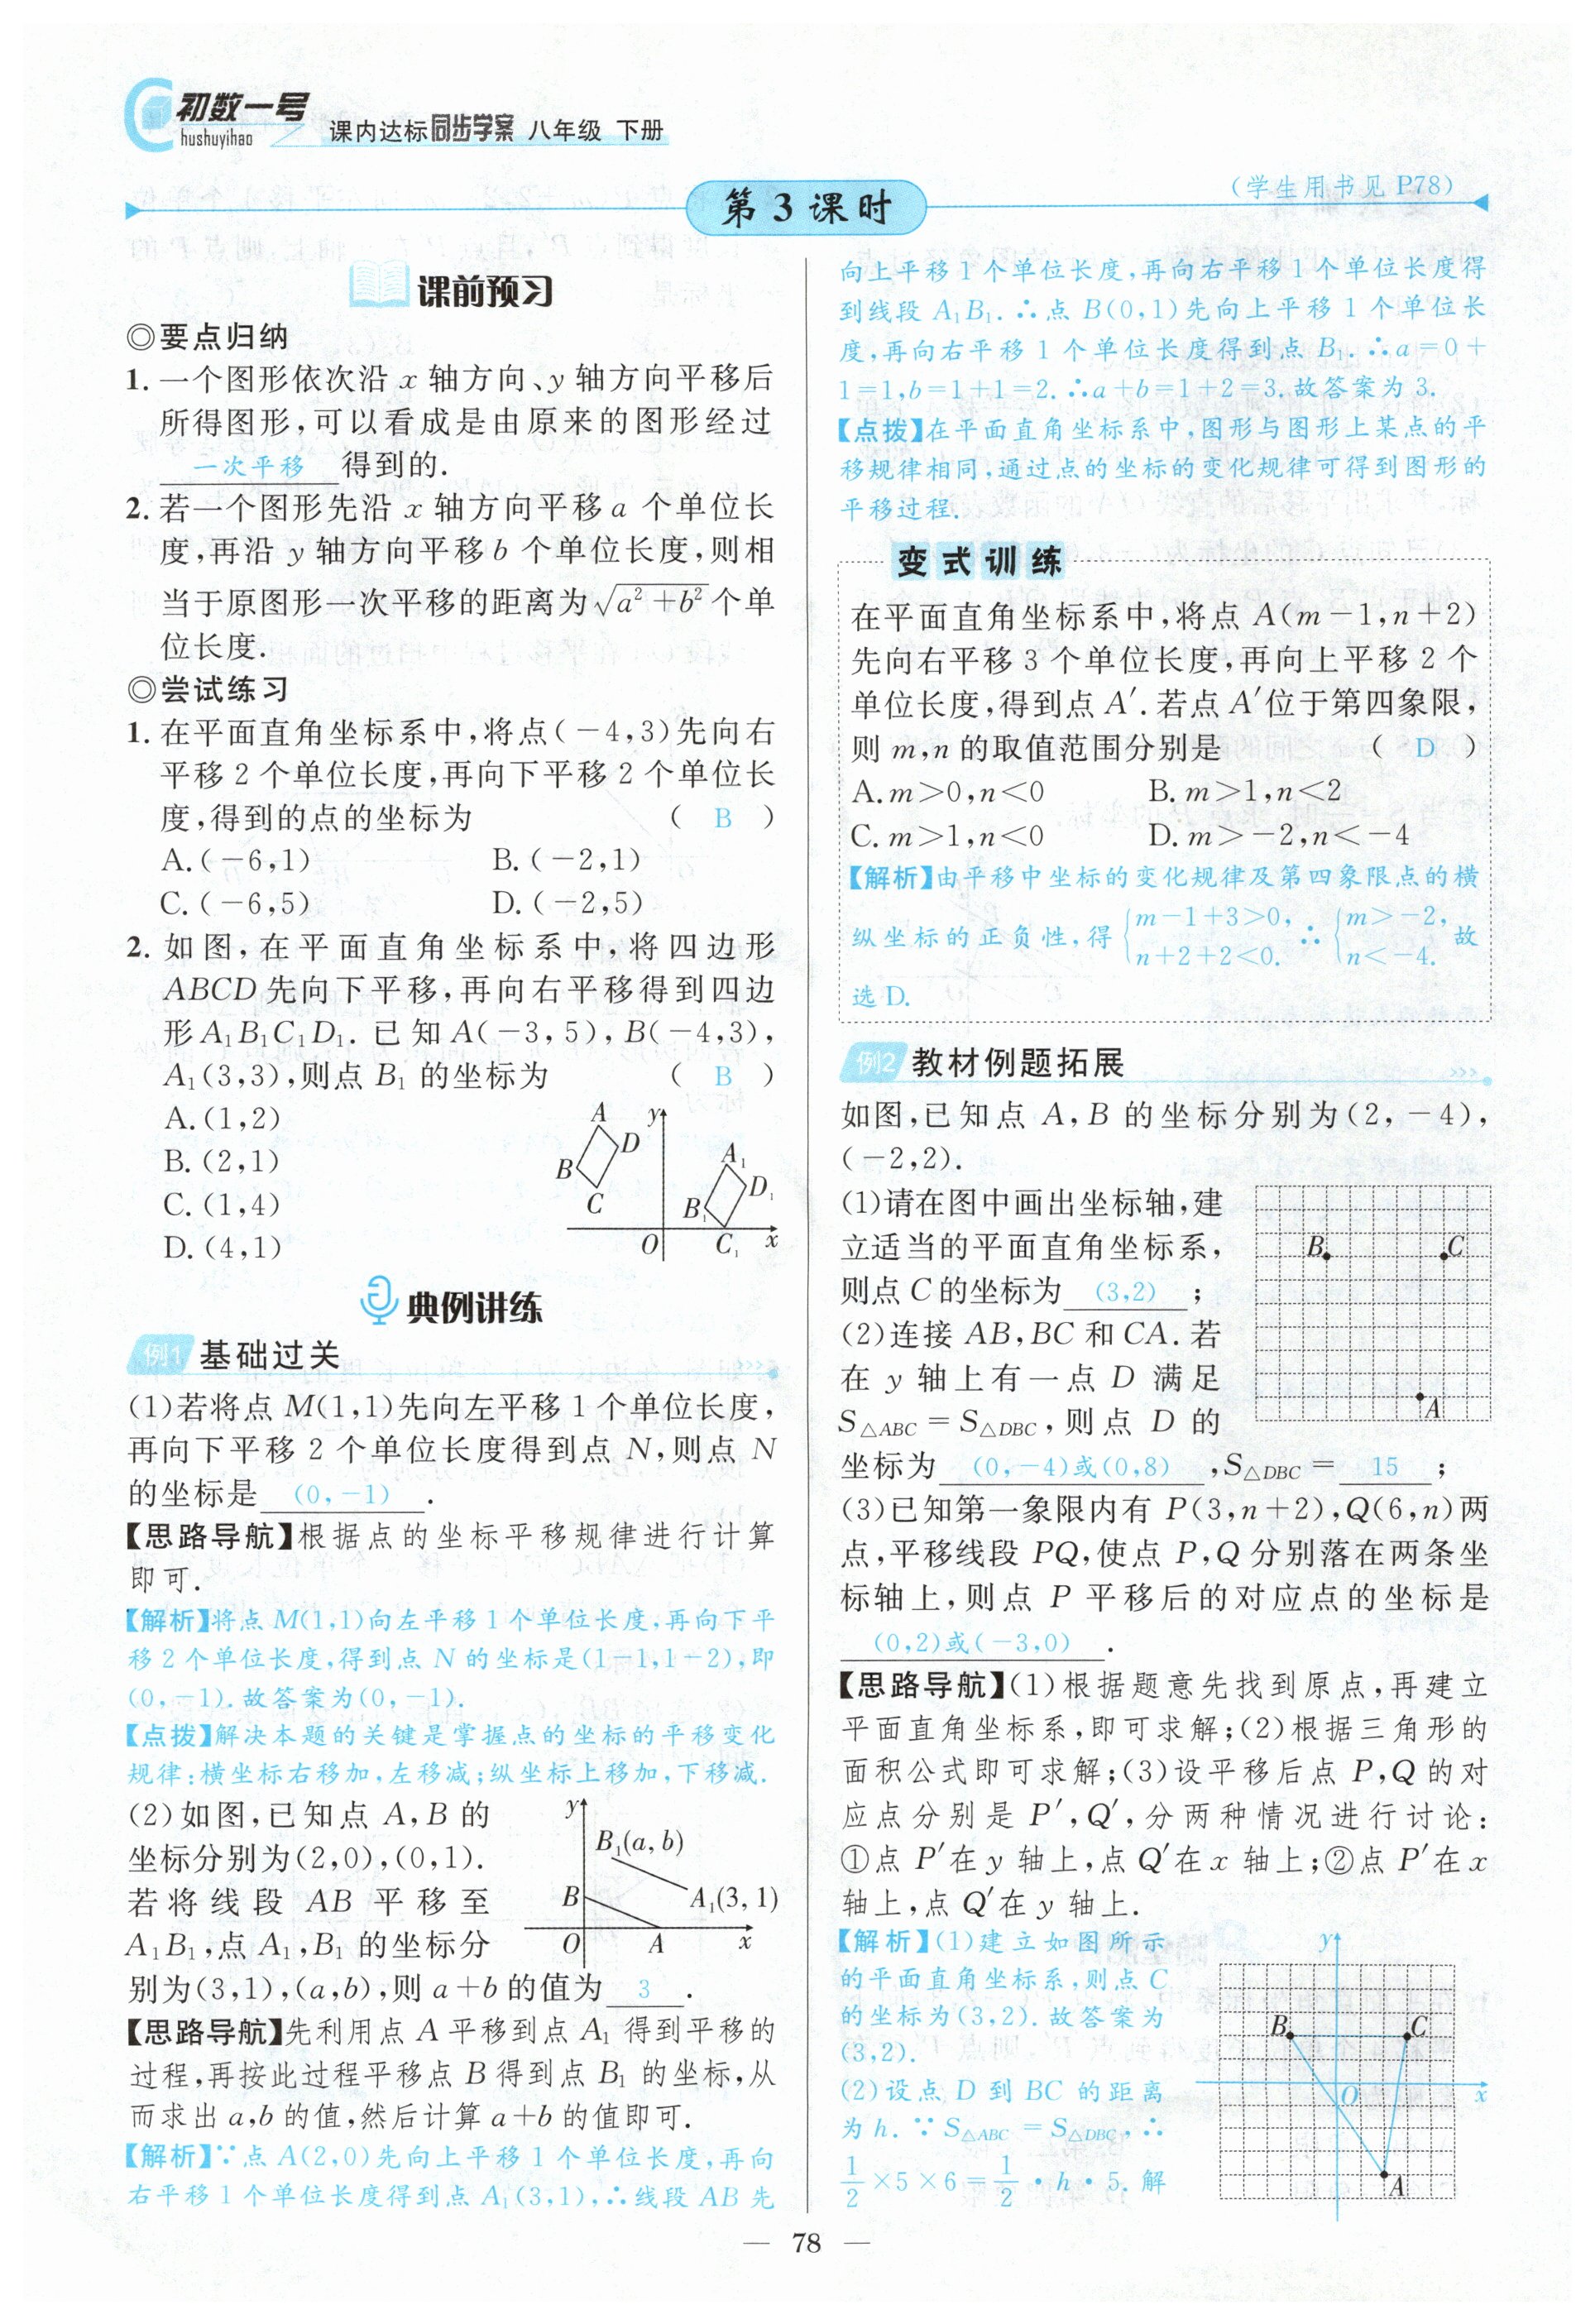 初数一号
hushuyihao
课内达标同步学案 八年级 下册
第3课时
(学生用书见 P78)
课前预习
◎要点归纳
1. 一个图形依次沿 x 轴方向、y 轴方向平移后
所得图形,可以看成是由原来的图形经过
一次平移 得到的.
2. 若一个图形先沿 x 轴方向平移 a 个单位长
度,再沿 y 轴方向平移 b 个单位长度,则相
当于原图形一次平移的距离为√(a²+b²)个单
位长度.
◎尝试练习
1. 在平面直角坐标系中,将点(-4,3)先向右
平移 2 个单位长度,再向下平移 2 个单位长
度,得到的点的坐标为 ( B )
A.(-6,1) B.(-2,1)
C.(-6,5) D.(-2,5)
2. 如图,在平面直角坐标系中,将四边形
ABCD 先向下平移,再向右平移得到四边
形 A₁B₁C₁D₁. 已知 A(-3,5),B(-4,3),
A₁(3,3),则点 B₁ 的坐标为 ( B )
A.(1,2)
B.(2,1)
C.(1,4)
D.(4,1)
A
y
D
B
C
A₁
D₁
B₁
O
C₁
x
典例讲练
例1 基础过关
(1)若将点 M(1,1)先向左平移 1 个单位长度,
再向下平移 2 个单位长度得到点 N,则点 N
的坐标是 (0,-1) .
【思路导航】根据点的坐标平移规律进行计算
即可.
【解析】将点 M(1,1)向左平移 1 个单位长度,再向下平
移 2 个单位长度,得到点 N 的坐标是(1-1,1-2),即
(0,-1). 故答案为(0,-1).
【点拨】解决本题的关键是掌握点的坐标的平移变化
规律:横坐标右移加,左移减;纵坐标上移加,下移减.
(2)如图,已知点 A,B 的
坐标分别为(2,0),(0,1).
若将线段 AB 平移至
A₁B₁,点 A₁,B₁ 的坐标分
别为(3,1),(a,b),则 a+b 的值为 3 .
y
B₁(a, b)
B
A₁(3, 1)
O
A
x
【思路导航】先利用点 A 平移到点 A₁ 得到平移的
过程,再按此过程平移点 B 得到点 B₁ 的坐标,从
而求出 a,b 的值,然后计算 a+b 的值即可.
【解析】∵点 A(2,0)先向上平移 1 个单位长度,再向
右平移 1 个单位长度得到点 A₁(3,1),∴线段 AB 先
向上平移 1 个单位长度,再向右平移 1 个单位长度得
到线段 A₁B₁. ∴点 B(0,1)先向上平移 1 个单位长
度,再向右平移 1 个单位长度得到点 B₁. ∴a=0+
1=1,b=1+1=2. ∴a+b=1+2=3. 故答案为 3.
【点拨】在平面直角坐标系中,图形与图形上某点的平
移规律相同,通过点的坐标的变化规律可得到图形的
平移过程.
变式训练
在平面直角坐标系中,将点 A(m-1,n+2)
先向右平移 3 个单位长度,再向上平移 2 个
单位长度,得到点 A′. 若点 A′位于第四象限,
则 m,n 的取值范围分别是 ( D )
A. m>0,n<0 B. m>1,n<2
C. m>1,n<0 D. m>-2,n<-4
【解析】由平移中坐标的变化规律及第四象限点的横
纵坐标的正负性,得 {m-1+3>0, n+2+2<0. ∴ {m>-2, n<-4. 故
选 D.
例2 教材例题拓展
如图,已知点 A,B 的坐标分别为(2,-4),
(-2,2).
(1)请在图中画出坐标轴,建
立适当的平面直角坐标系,
则点 C 的坐标为 (3,2) ;
(2)连接 AB,BC 和 CA. 若
在 y 轴上有一点 D 满足
S△ABC=S△DBC,则点 D 的
坐标为 (0,-4)或(0,8) ,S△DBC= 15 ;
B
C
A
(3)已知第一象限内有 P(3,n+2),Q(6,n)两
点,平移线段 PQ,使点 P,Q 分别落在两条坐
标轴上,则点 P 平移后的对应点的坐标是
(0,2)或(-3,0) .
【思路导航】(1)根据题意先找到原点,再建立
平面直角坐标系,即可求解;(2)根据三角形的
面积公式即可求解;(3)设平移后点 P,Q 的对
应点分别是 P′,Q′,分两种情况进行讨论:
①点 P′在 y 轴上,点 Q′在 x 轴上;②点 P′在 x
轴上,点 Q′在 y 轴上.
【解析】(1)建立如图所示
的平面直角坐标系,则点 C
的坐标为(3,2). 故答案为
(3,2).
(2)设点 D 到 BC 的距离
为 h. ∵S△ABC=S△DBC,∴
1/2×5×6=1/2·h·5. 解
y
B
C
O
x
A
— 78 —